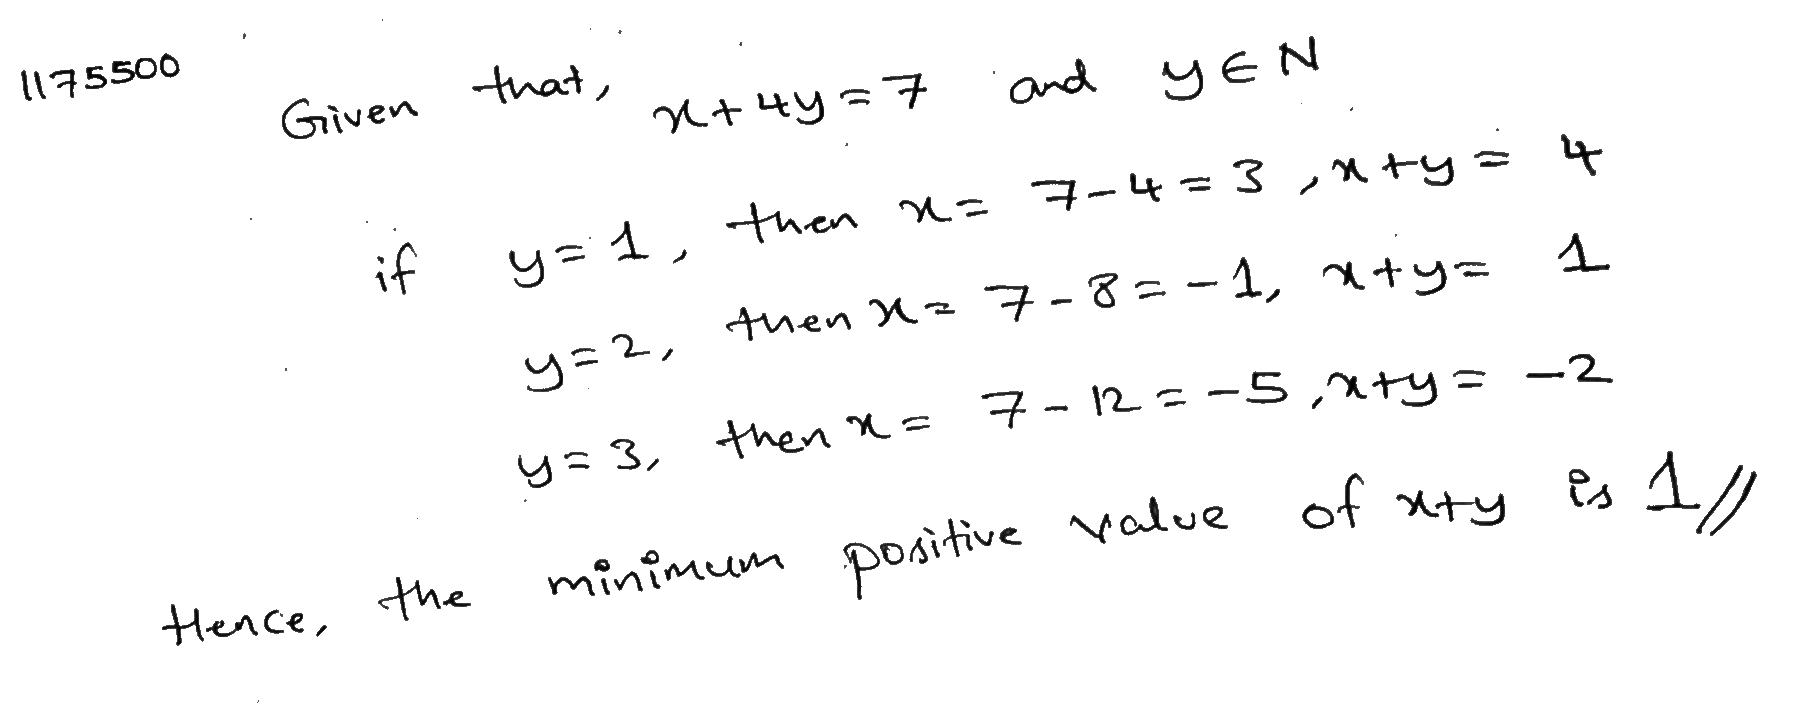 1175500
Given that, x+4y=7 and y∈N
if y=1, then x= 7-4=3, x+y= 4
y=2, then x= 7-8=-1, x+y= 1
y=3, then x= 7-12=-5, x+y= -2
Hence, the minimum positive value of x+y is 1//